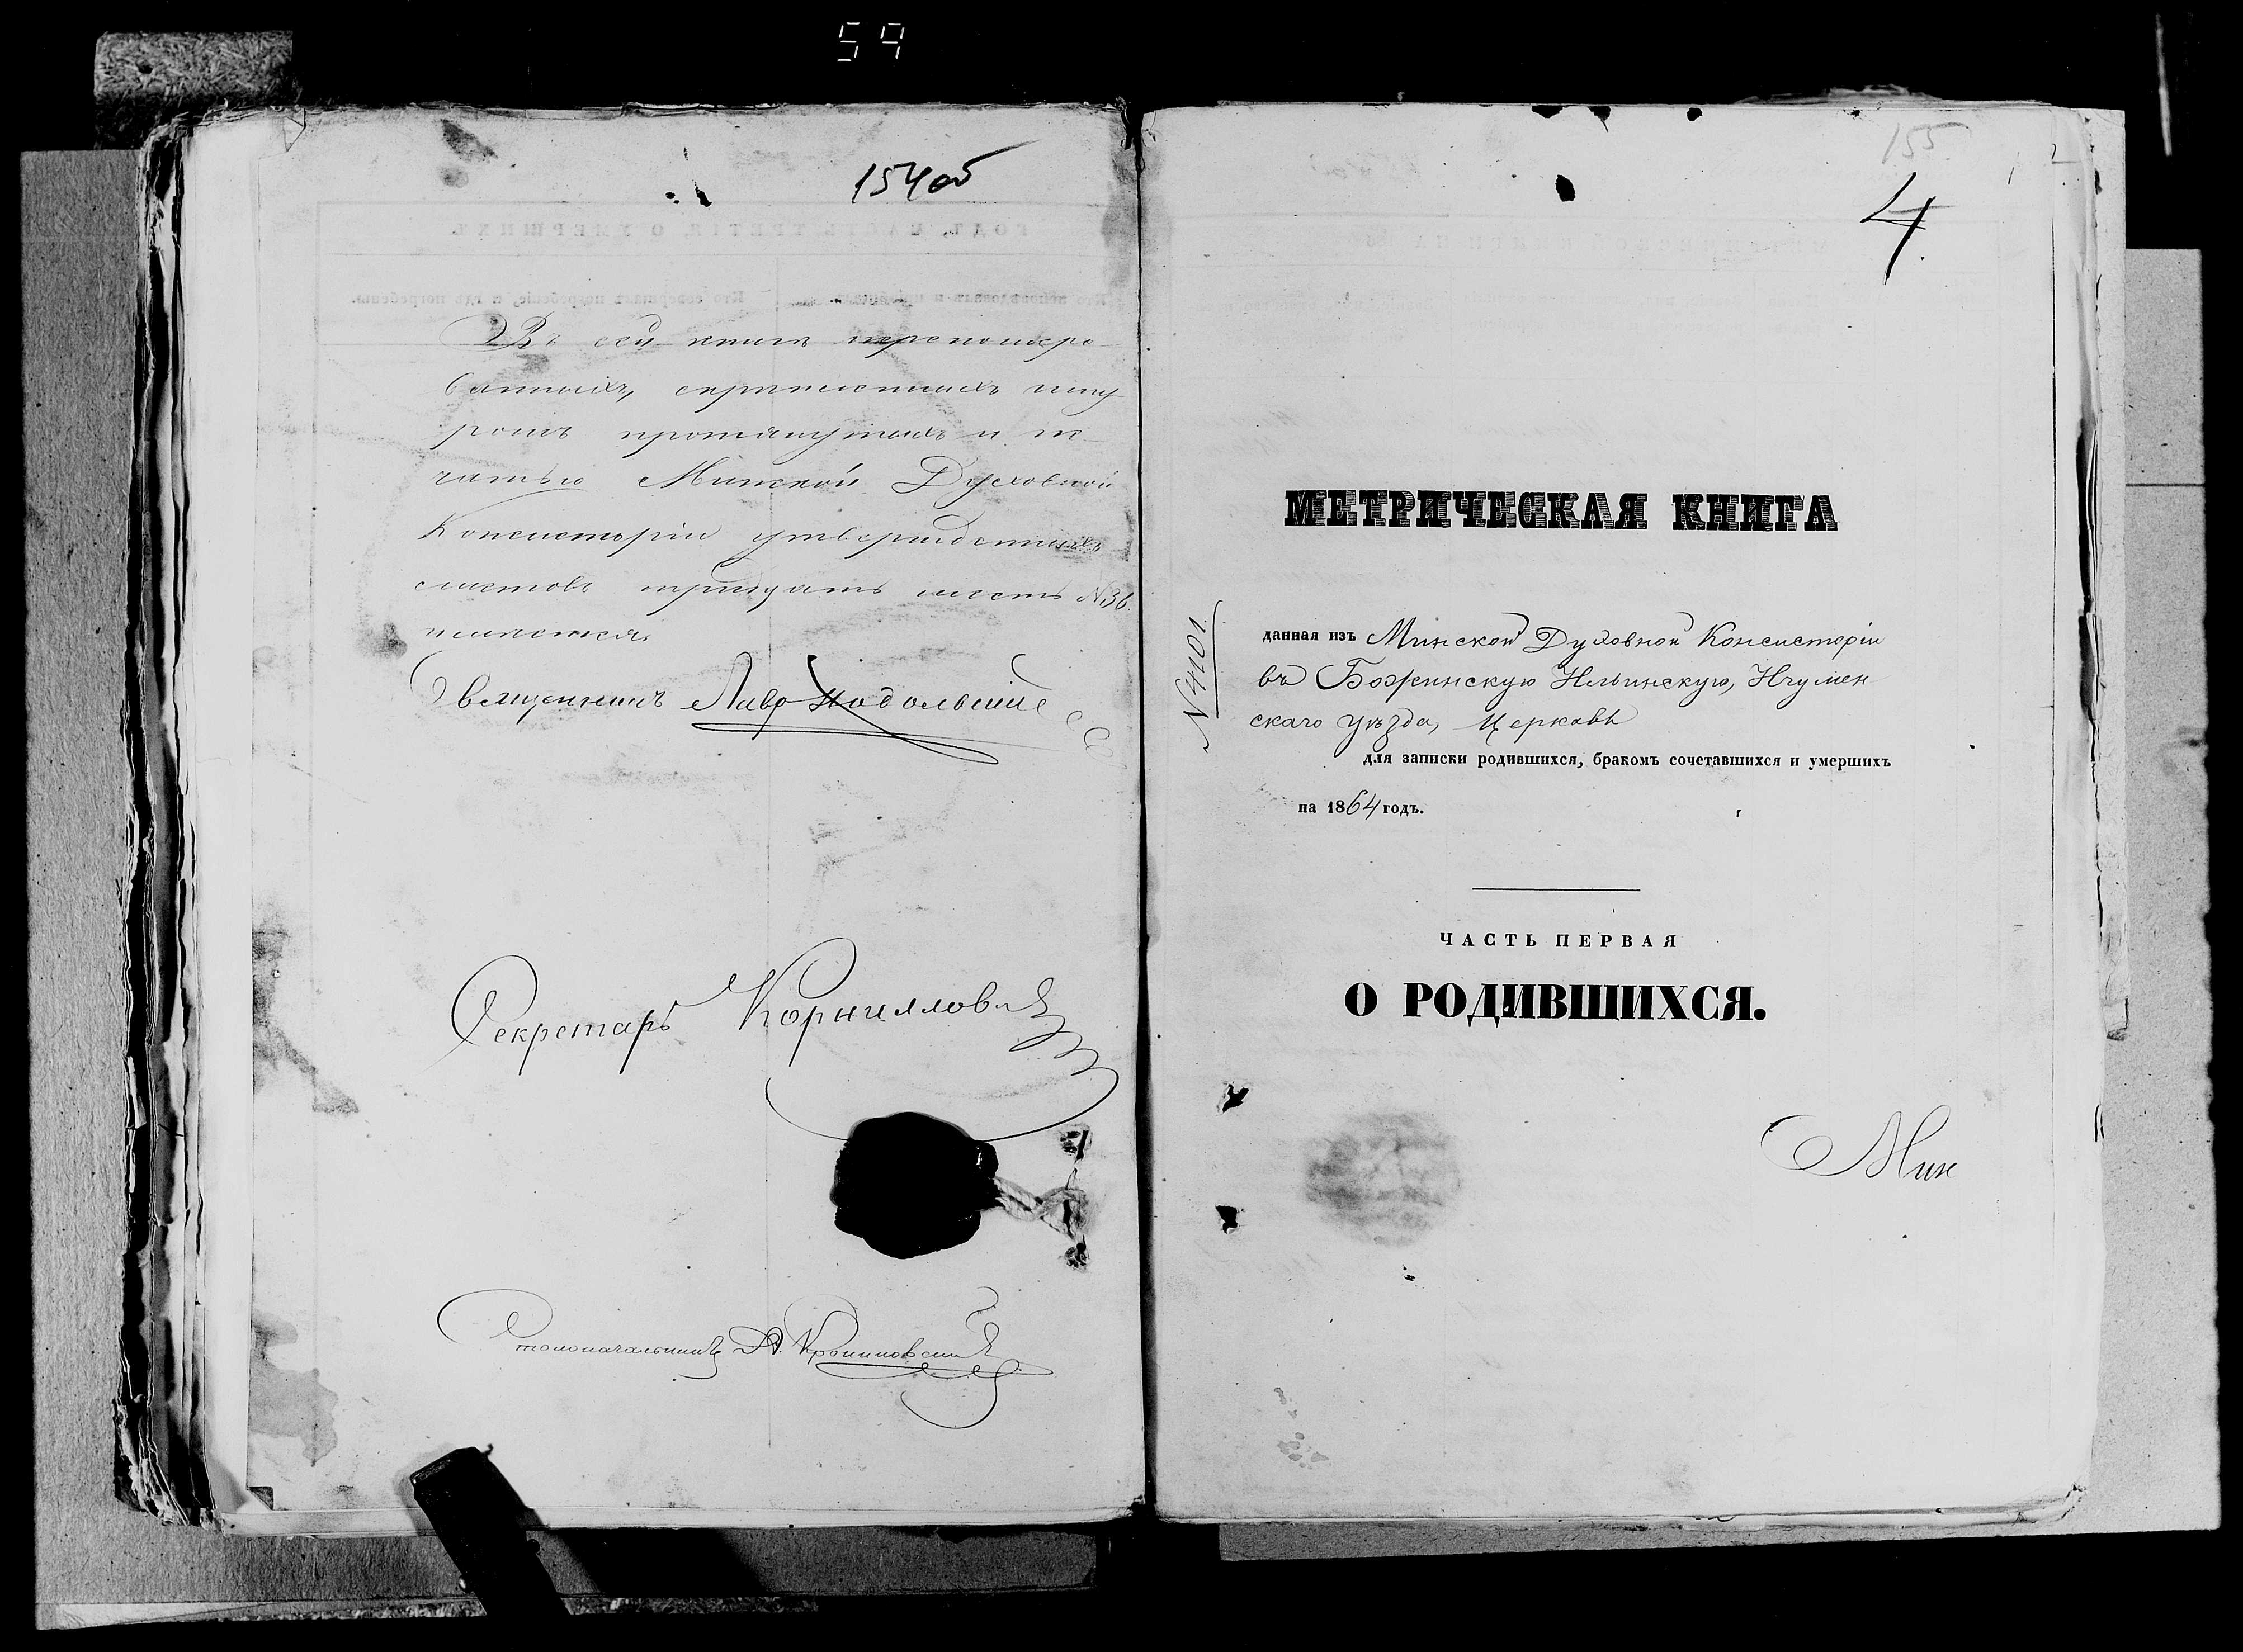 59
154об
Въ сей книгѣ перенумеро-
ванныхъ, скрѣпленныхъ шну-
ромъ протянутыхъ и пе-
чатью Минской Духовной
Консисторіи утвержденныхъ
листовъ тридцать шесть №36
имѣется.
Священникъ
Секретарь Корниловъ
Столоначальникъ
155
4
МЕТРИЧЕСКАЯ КНИГА
№4101.
данная изъ Минской Духовной Консисторіи
въ Божинскую Ильинскую, Игумен
скаго уѣзда, Церковь
для записки родившихся, бракомъ сочетавшихся и умершихъ
на 1864 годъ.
ЧАСТЬ ПЕРВАЯ
О РОДИВШИХСЯ.
Мин